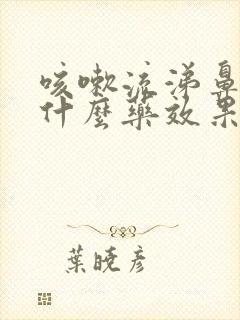 咳嗽流涕鼻
什麼藥效果
葉曉彥